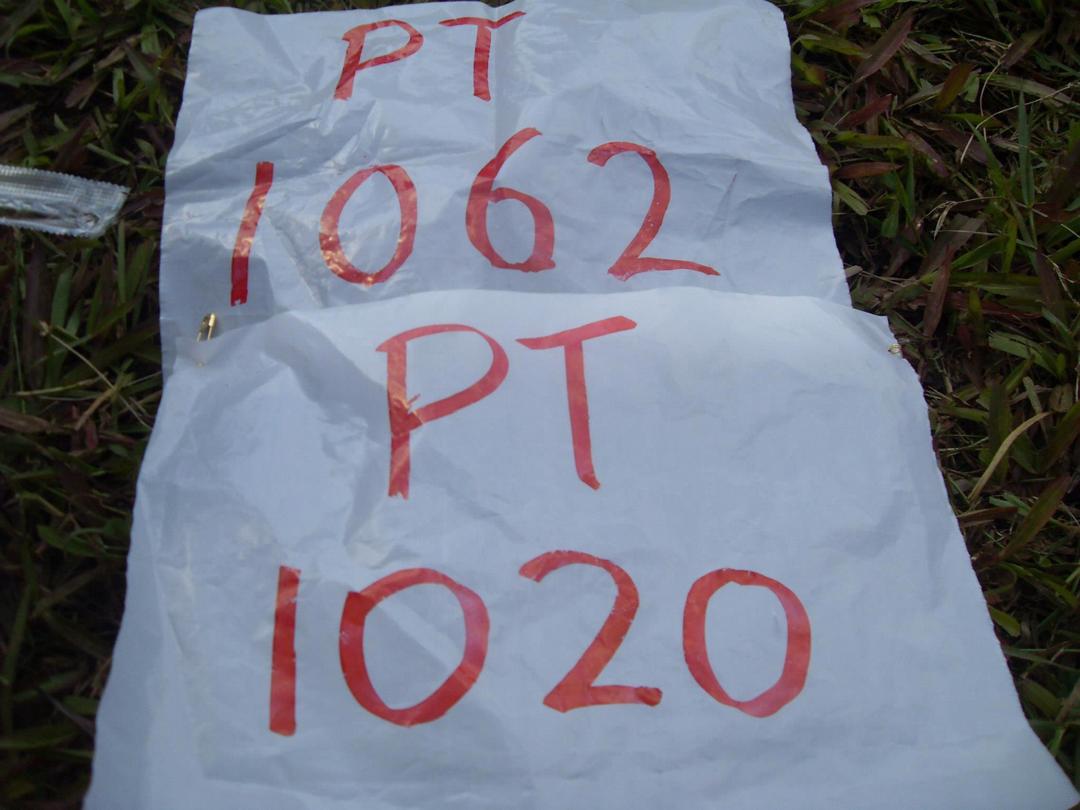 PT
1062
PT
1020